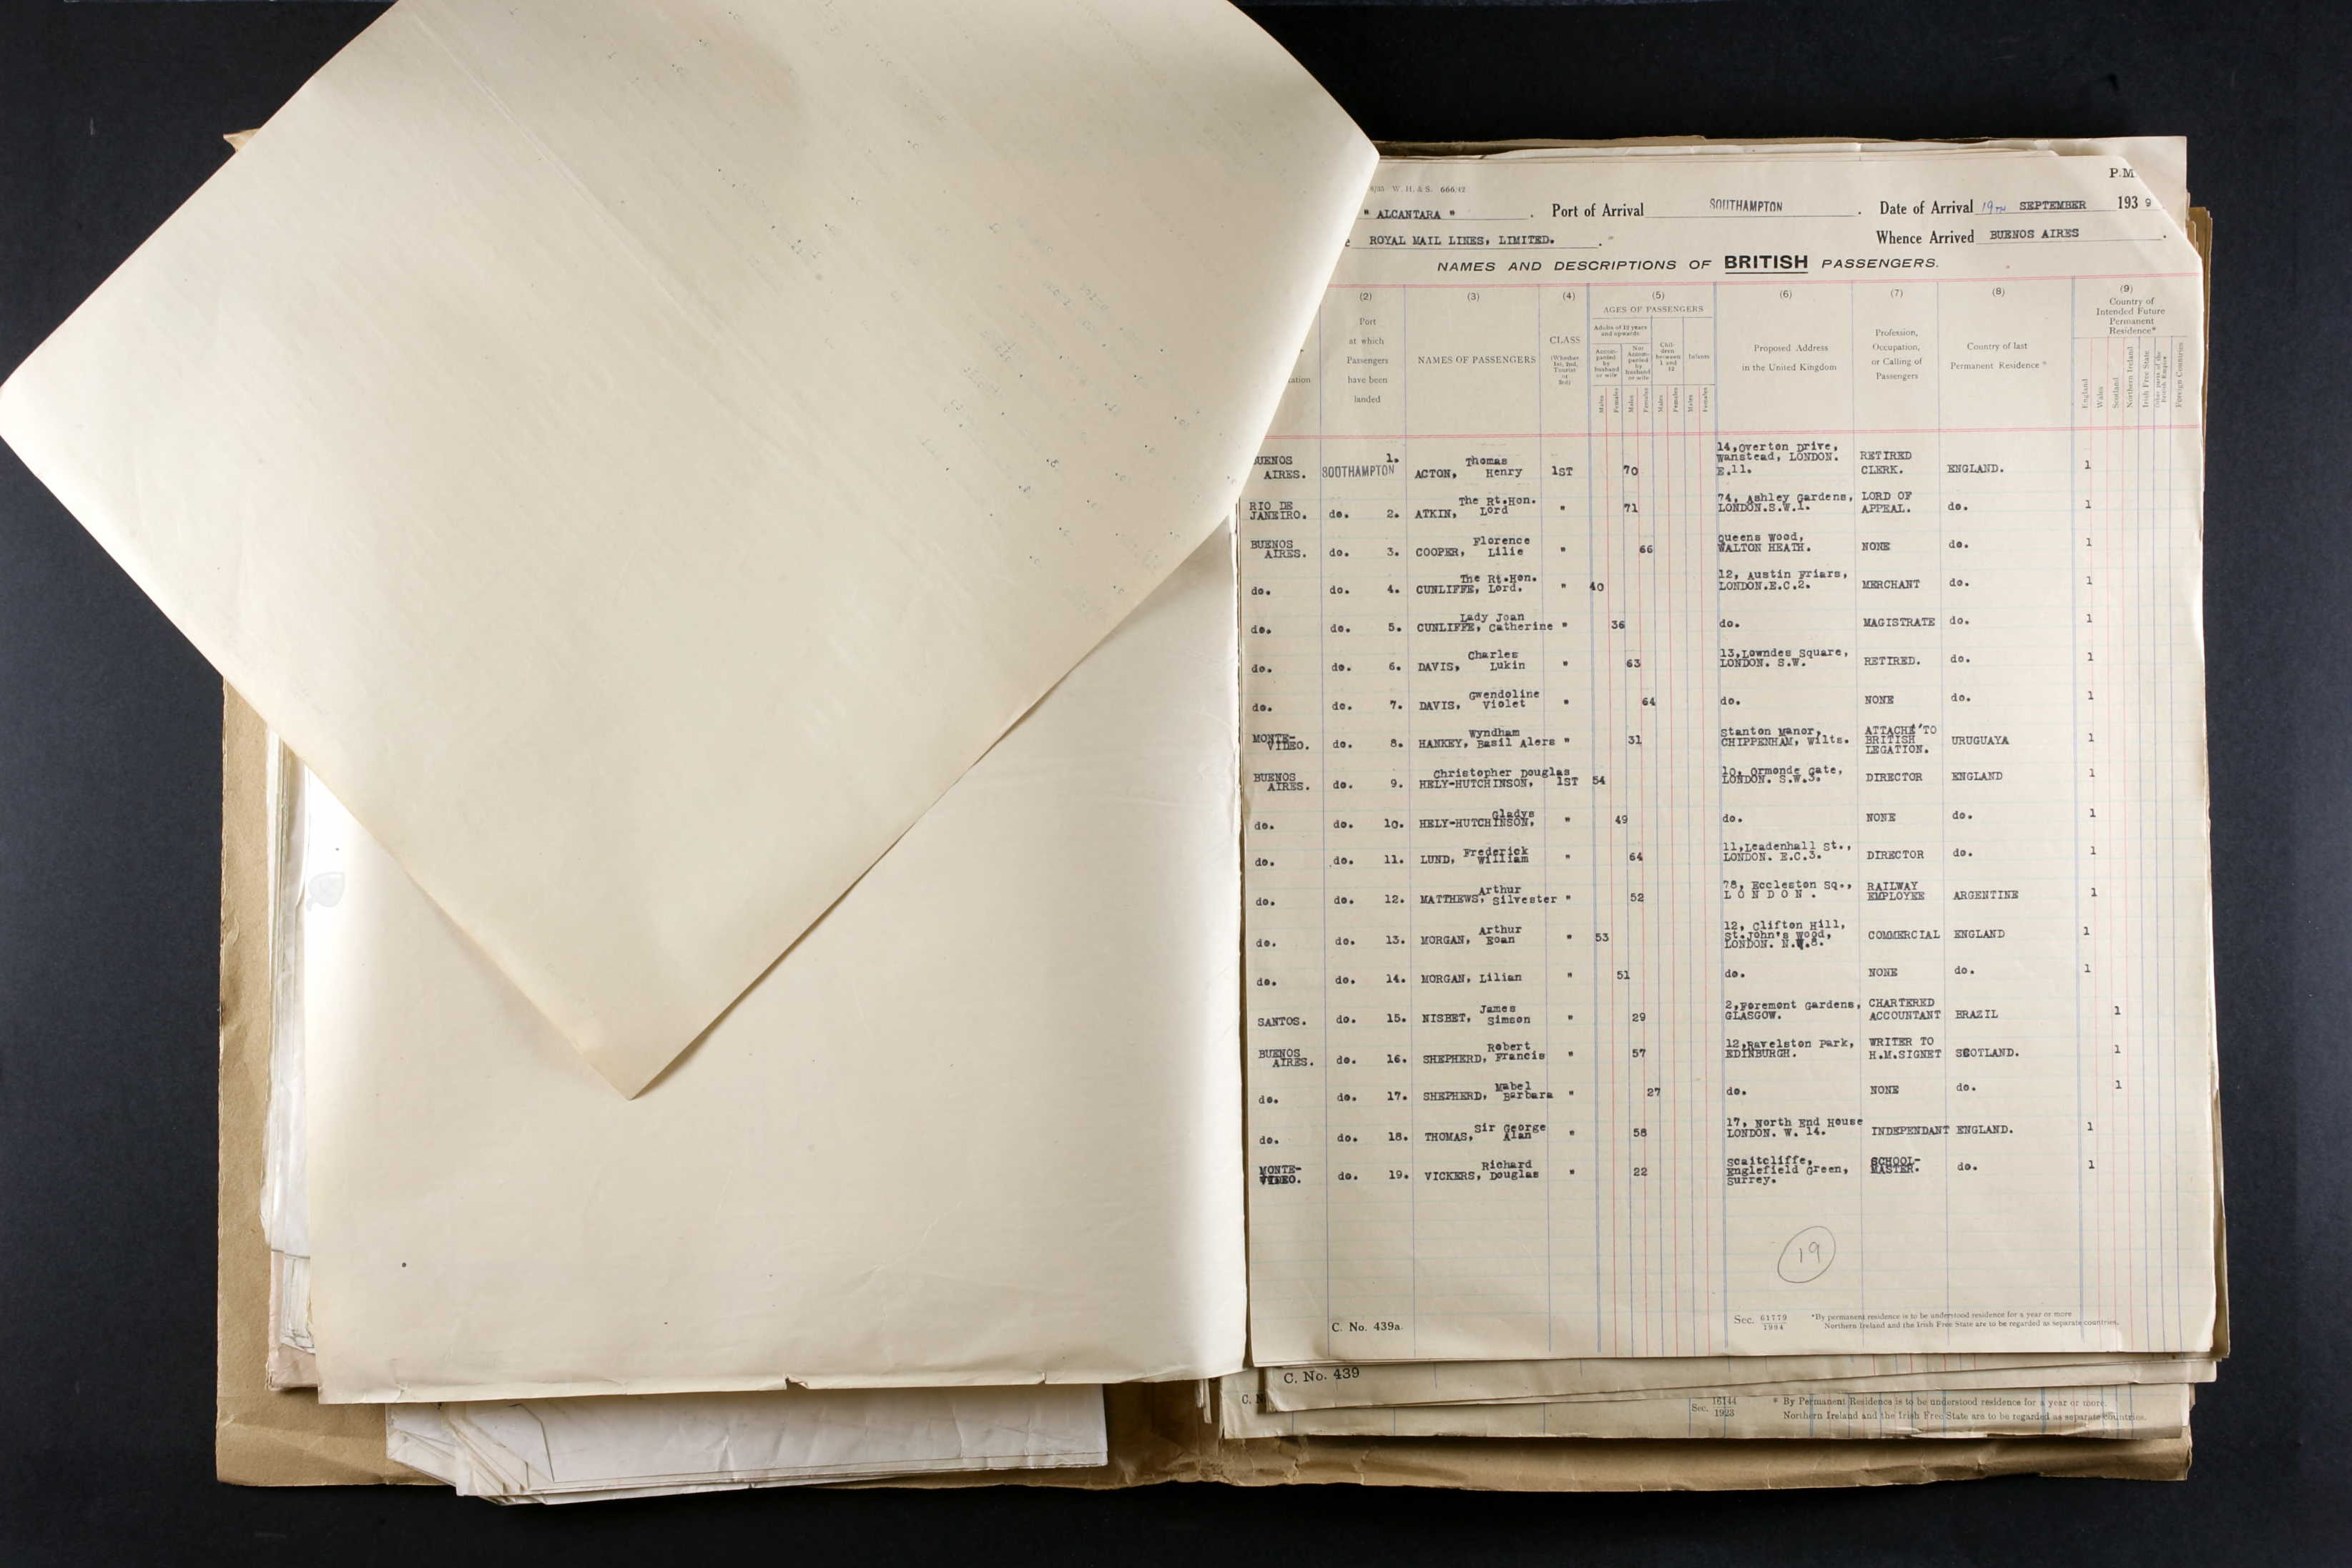 P.M
W. H. & S. 666/42
" ALCANTARA " . Port of Arrival SOUTHAMPTON . Date of Arrival 19TH SEPTEMBER 1939
ROYAL MAIL LINES, LIMITED. . Whence Arrived BUENOS AIRES .
NAMES AND DESCRIPTIONS OF BRITISH PASSENGERS.
(2) (3) (4) (5) (6) (7) (8) (9)
Port at which Passengers have been landed
NAMES OF PASSENGERS
CLASS (Whether 1st, 2nd, Tourist or 3rd)
AGES OF PASSENGERS
Adults of 12 years and upwards
Accompanied by husband or wife
Not Accompanied by husband or wife
Children between 1 and 12
Infants
Males Females Males Females Males Females Males Females
Proposed Address in the United Kingdom
Profession, Occupation, or Calling of Passengers
Country of last Permanent Residence *
Country of Intended Future Permanent Residence*
England Wales Scotland Northern Ireland Irish Free State Other parts of the British Empire Foreign Countries
BUENOS AIRES. SOUTHAMPTON 1. ACTON, Thomas Henry 1ST 70 14,Overton Drive, Wanstead, LONDON. E.11. RETIRED CLERK. ENGLAND. 1
RIO DE JANEIRO. do. 2. ATKIN, The Rt.Hon. Lord " 71 74, Ashley Gardens, LONDON.S.W.1. LORD OF APPEAL. do. 1
BUENOS AIRES. do. 3. COOPER, Florence Lilie " 66 Queens Wood, WALTON HEATH. NONE do. 1
do. do. 4. CUNLIFFE, The Rt.Hon. Lord. " 40 12, Austin Friars, LONDON.E.C.2. MERCHANT do. 1
do. do. 5. CUNLIFFE, Lady Joan Catherine " 36 do. MAGISTRATE do. 1
do. do. 6. DAVIS, Charles Lukin " 63 13,Lowndes Square, LONDON. S.W. RETIRED. do. 1
do. do. 7. DAVIS, Gwendoline Violet " 64 do. NONE do. 1
MONTE-VIDEO. do. 8. HANKEY, Wyndham Basil Alers " 31 Stanton Manor, CHIPPENHAM, Wilts. ATTACHÉ TO BRITISH LEGATION. URUGUAYA 1
BUENOS AIRES. do. 9. HELY-HUTCHINSON, Christopher Douglas 1ST 54 10, Ormonde Gate, LONDON. S.W.3. DIRECTOR ENGLAND 1
do. do. 10. HELY-HUTCHINSON, Gladys " 49 do. NONE do. 1
do. do. 11. LUND, Frederick William " 64 11,Leadenhall St., LONDON. E.C.3. DIRECTOR do. 1
do. do. 12. MATTHEWS, Arthur Silvester " 52 78, Eccleston Sq., L O N D O N . RAILWAY EMPLOYEE ARGENTINE 1
do. do. 13. MORGAN, Arthur Eoan " 53 12, Clifton Hill, St.John's Wood, LONDON. N.W.8. COMMERCIAL ENGLAND 1
do. do. 14. MORGAN, Lilian " 51 do. NONE do. 1
SANTOS. do. 15. NISBET, James Simson " 29 2,Foremont Gardens, GLASGOW. CHARTERED ACCOUNTANT BRAZIL 1
BUENOS AIRES. do. 16. SHEPHERD, Robert Francis " 57 12,Ravelston Park, EDINBURGH. WRITER TO H.M.SIGNET SCOTLAND. 1
do. do. 17. SHEPHERD, Mabel Barbara " 27 do. NONE do. 1
do. do. 18. THOMAS, Sir George Alan " 58 17, North End House LONDON. W. 14. INDEPENDANT ENGLAND. 1
MONTE-VIDEO. do. 19. VICKERS, Richard Douglas " 22 Scaitcliffe, Englefield Green, Surrey. SCHOOL-MASTER. do. 1
19
C. No. 439a.
Sec. 61779 1934
*By permanent residence is to be understood residence for a year or more
Northern Ireland and the Irish Free State are to be regarded as separate countries.
C. No. 439
Sec. 16144 1923
* By Permanent Residence is to be understood residence for a year or more.
Northern Ireland and the Irish Free State are to be regarded as separate countries.